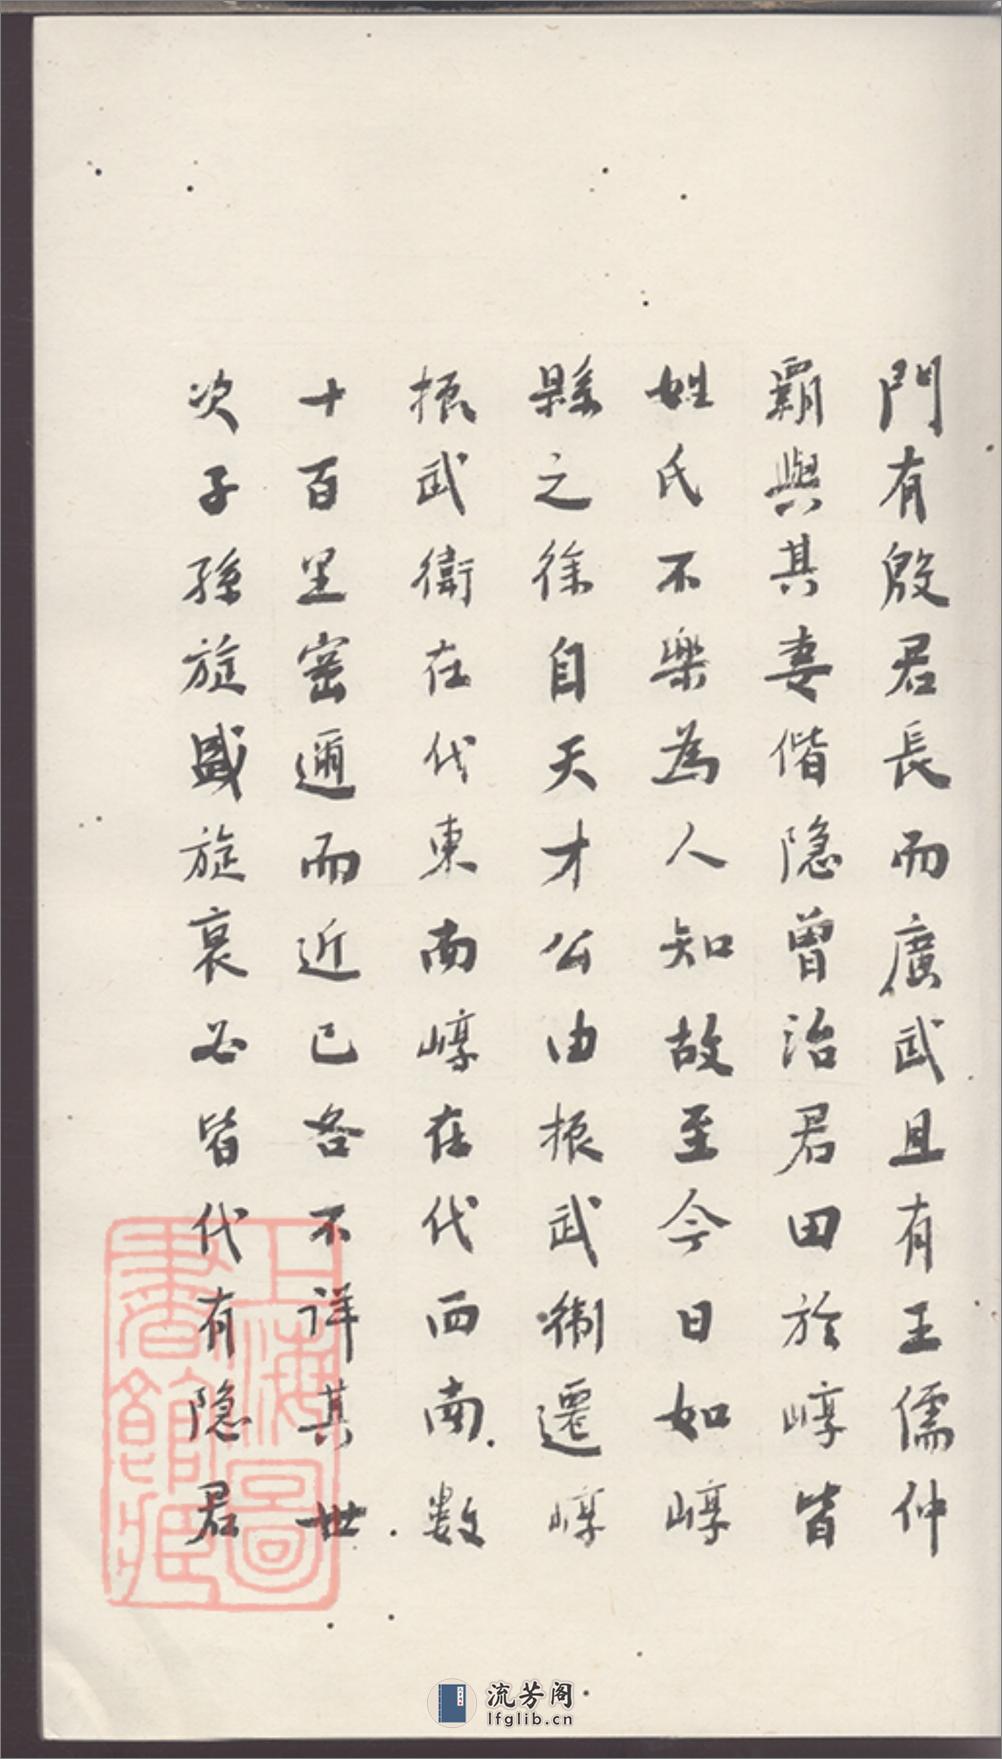 門有殷君長而廣武且有王儒仲
霸與其妻偕隐曾治君田於崞皆
姓氏不樂為人知故至今日如崞
縣之徐自天才公由振武衛遷崞
振武衛在代東南崞在代西南数
十百里密邇而近已各不詳其世
次子孫旋盛旋衰必皆代有隐君
上海圖
書館藏
流芳阁
lfglib.cn